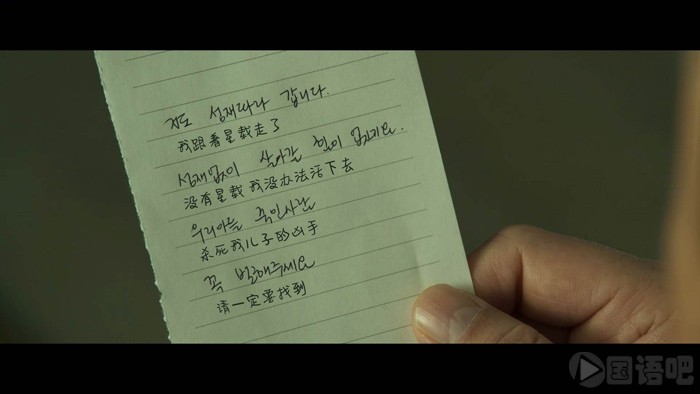 저도 성재따라 갑니다.
我跟着星载走了
성재없이 살아갈 힘이 없네요.
没有星载我没办法活下去
우리아들 죽인사람
杀死我儿子的凶手
꼭 벌해주세요
请一定要找到
国语吧